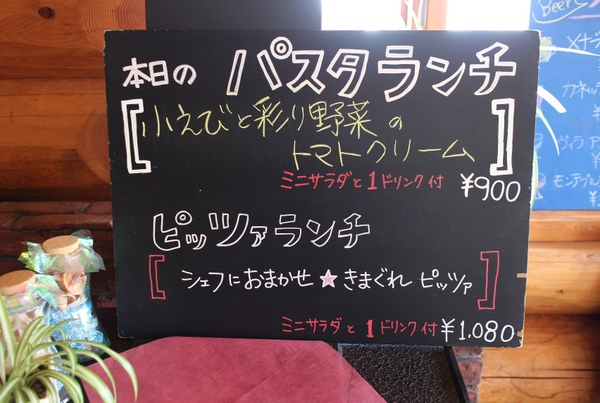 本日の パスタランチ
[小えびと彩り野菜の
トマトクリーム]
ミニサラダと1ドリンク付 ¥900
ピッツァランチ
[シェフにおまかせ★きまぐれ ピッツァ]
ミニサラダと1ドリンク付 ¥1,080
Beer